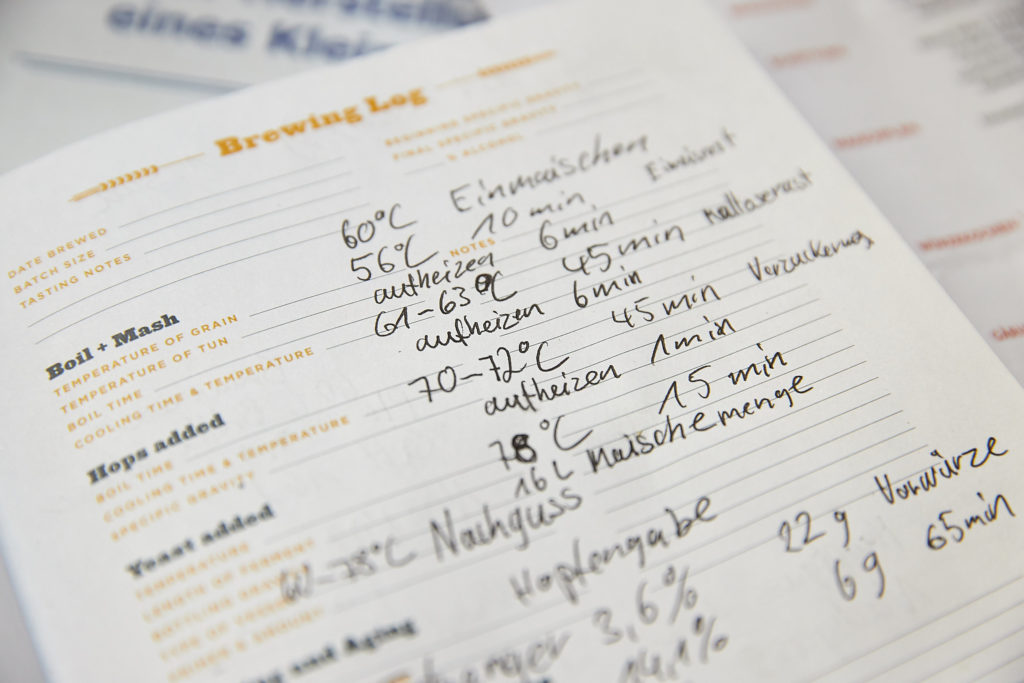 eines
Brewing Log
BEGINNING SPECIFIC GRAVITY
FINAL SPECIFIC GRAVITY
% ALCOHOL
DATE BREWED
BATCH SIZE
TASTING NOTES
NOTES
60°C Einmaischen
56°C 10 min.
aufheizen 6 min
61-63°C 45 min
aufheizen 6 min
70-72°C 45 min Verzuckerung
aufheizen 1 min
78°C 15 min
16 L Maischemenge
78°C Nachguss
Hopfengabe
3,6% 22 g Vorwürze
14,1% 6 g 65 min
Boil + Mash
TEMPERATURE OF GRAIN
TEMPERATURE OF TUN
BOIL TIME
COOLING TIME & TEMPERATURE
Hops added
BOIL TIME
COOLING TIME & TEMPERATURE
SPECIFIC GRAVITY
Yeast added
TEMPERATURE
LENGTH OF FERMENT
and Aging